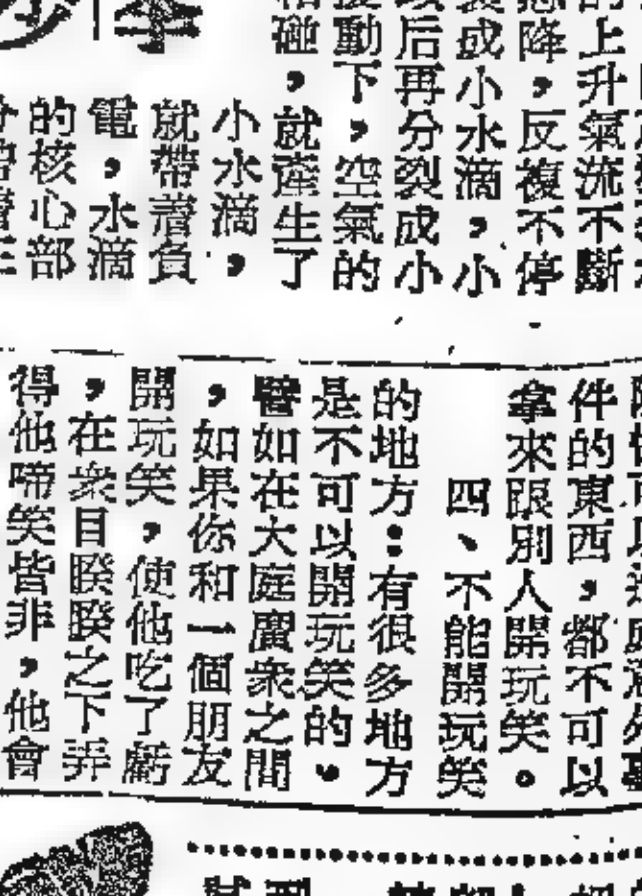 的上升氣流不斷
降，反複不停
成小水滴，小
后再分裂成小
動下，空氣的
碰，就產生了
小水滴，
就帶着負
電，水滴
的核心部
件的東西，都不可以
拿來跟別人開玩笑。
四、不能開玩笑
的地方：有很多地方
是不可以開玩笑的。
譬如在大庭廣衆之間
，如果你和一個朋友
開玩笑，使他吃了虧
，在衆目睽睽之下弄
得他啼笑皆非，他會